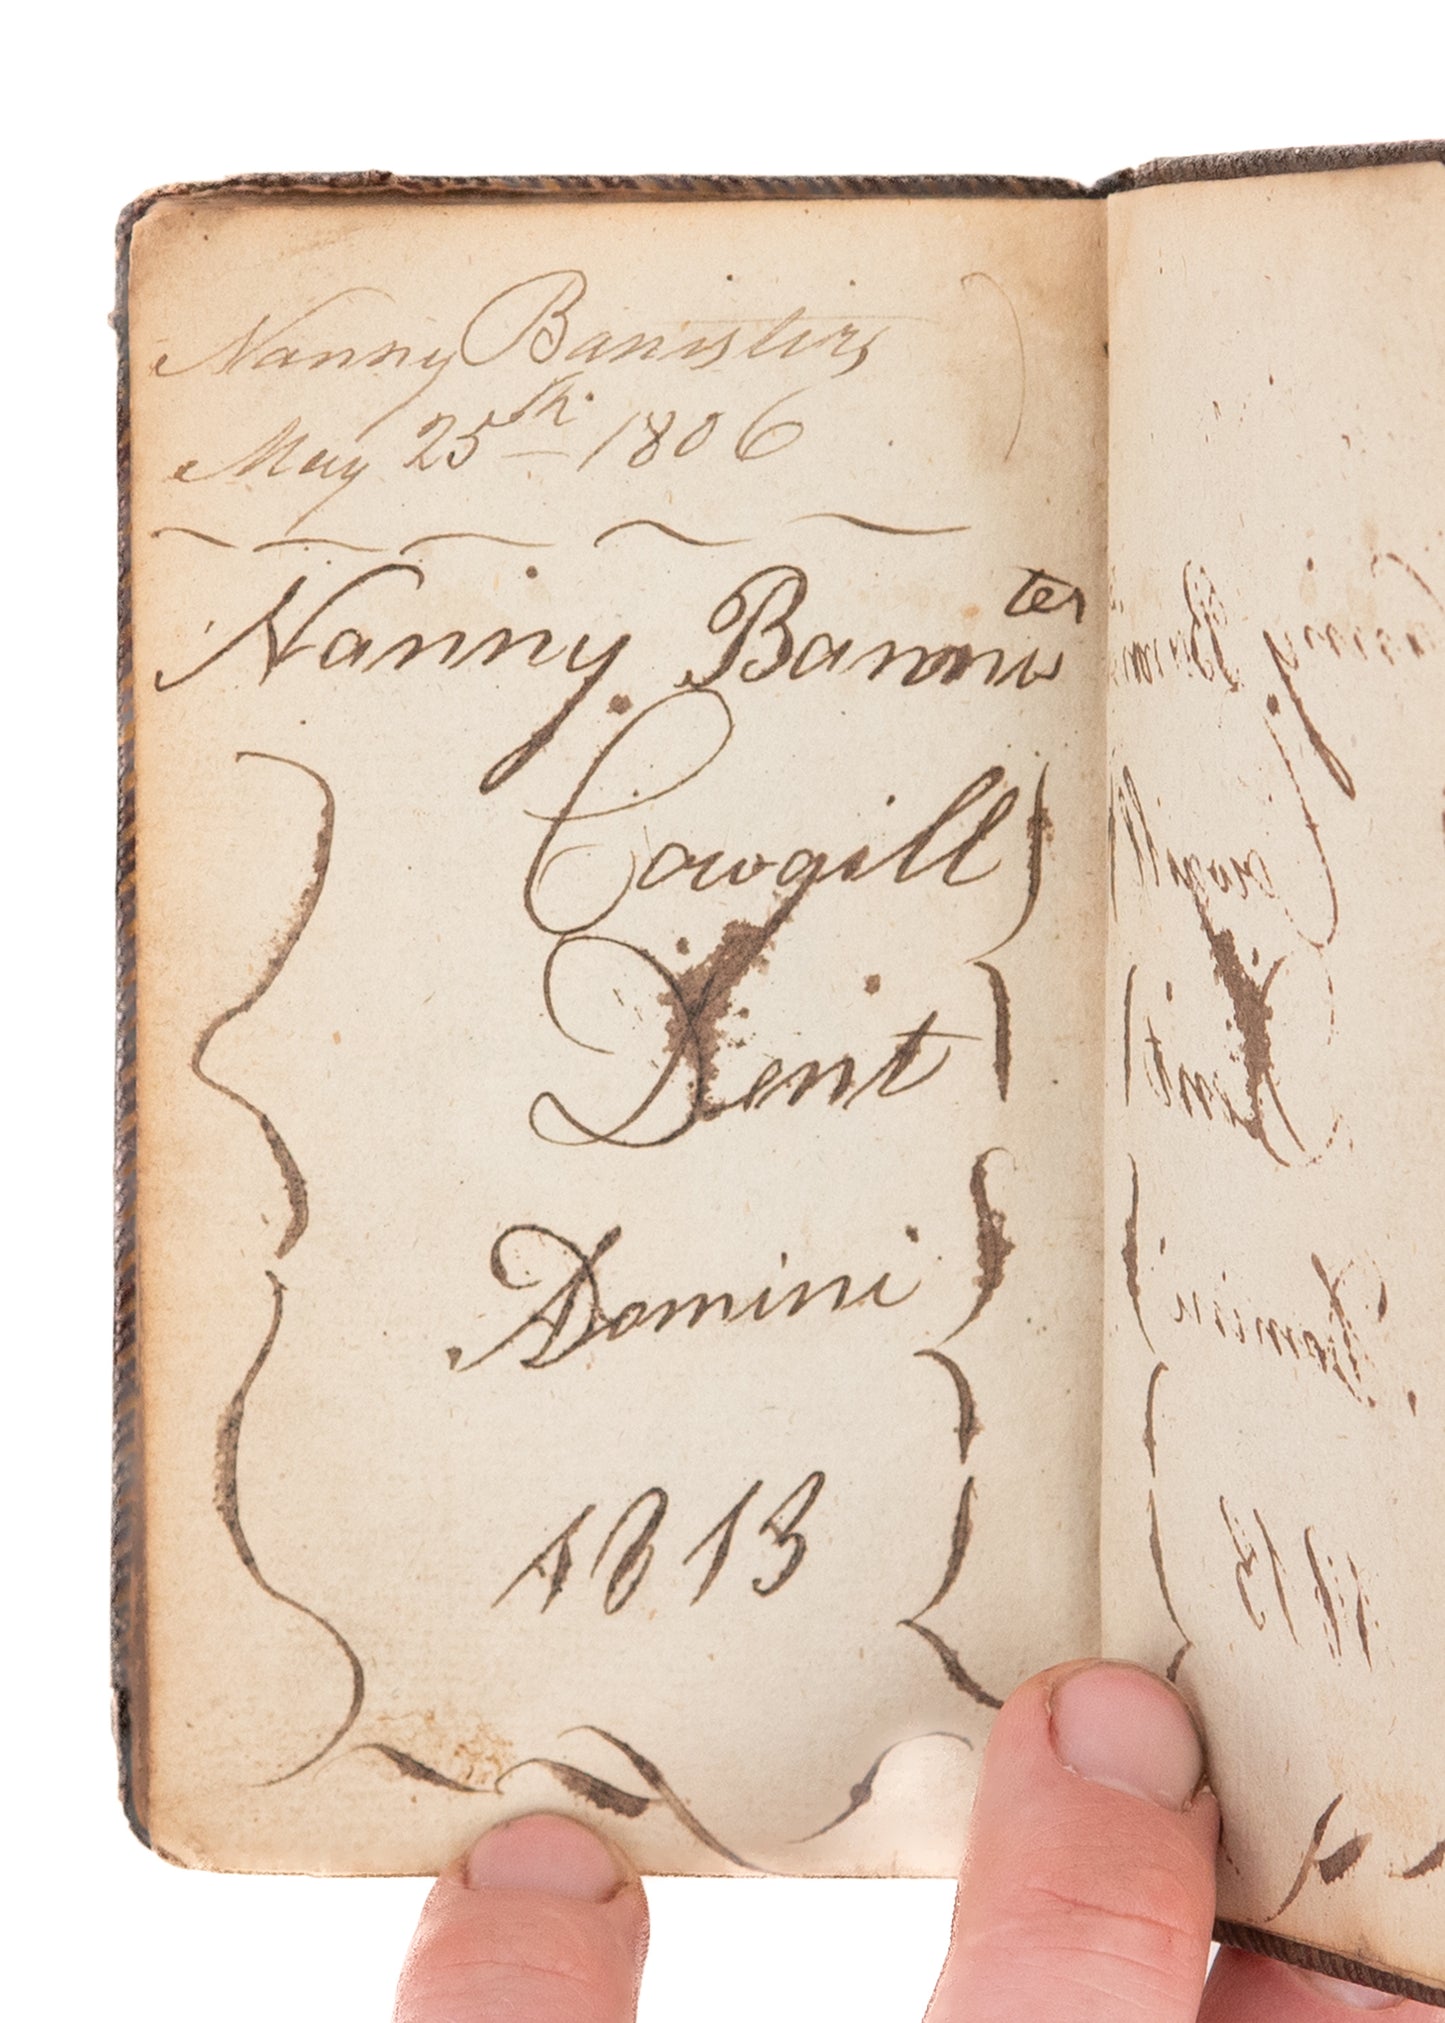 Nanny Banisters
May 25th. 1806
Nanny Bannister
Cowgill
Kent
Domini
1813